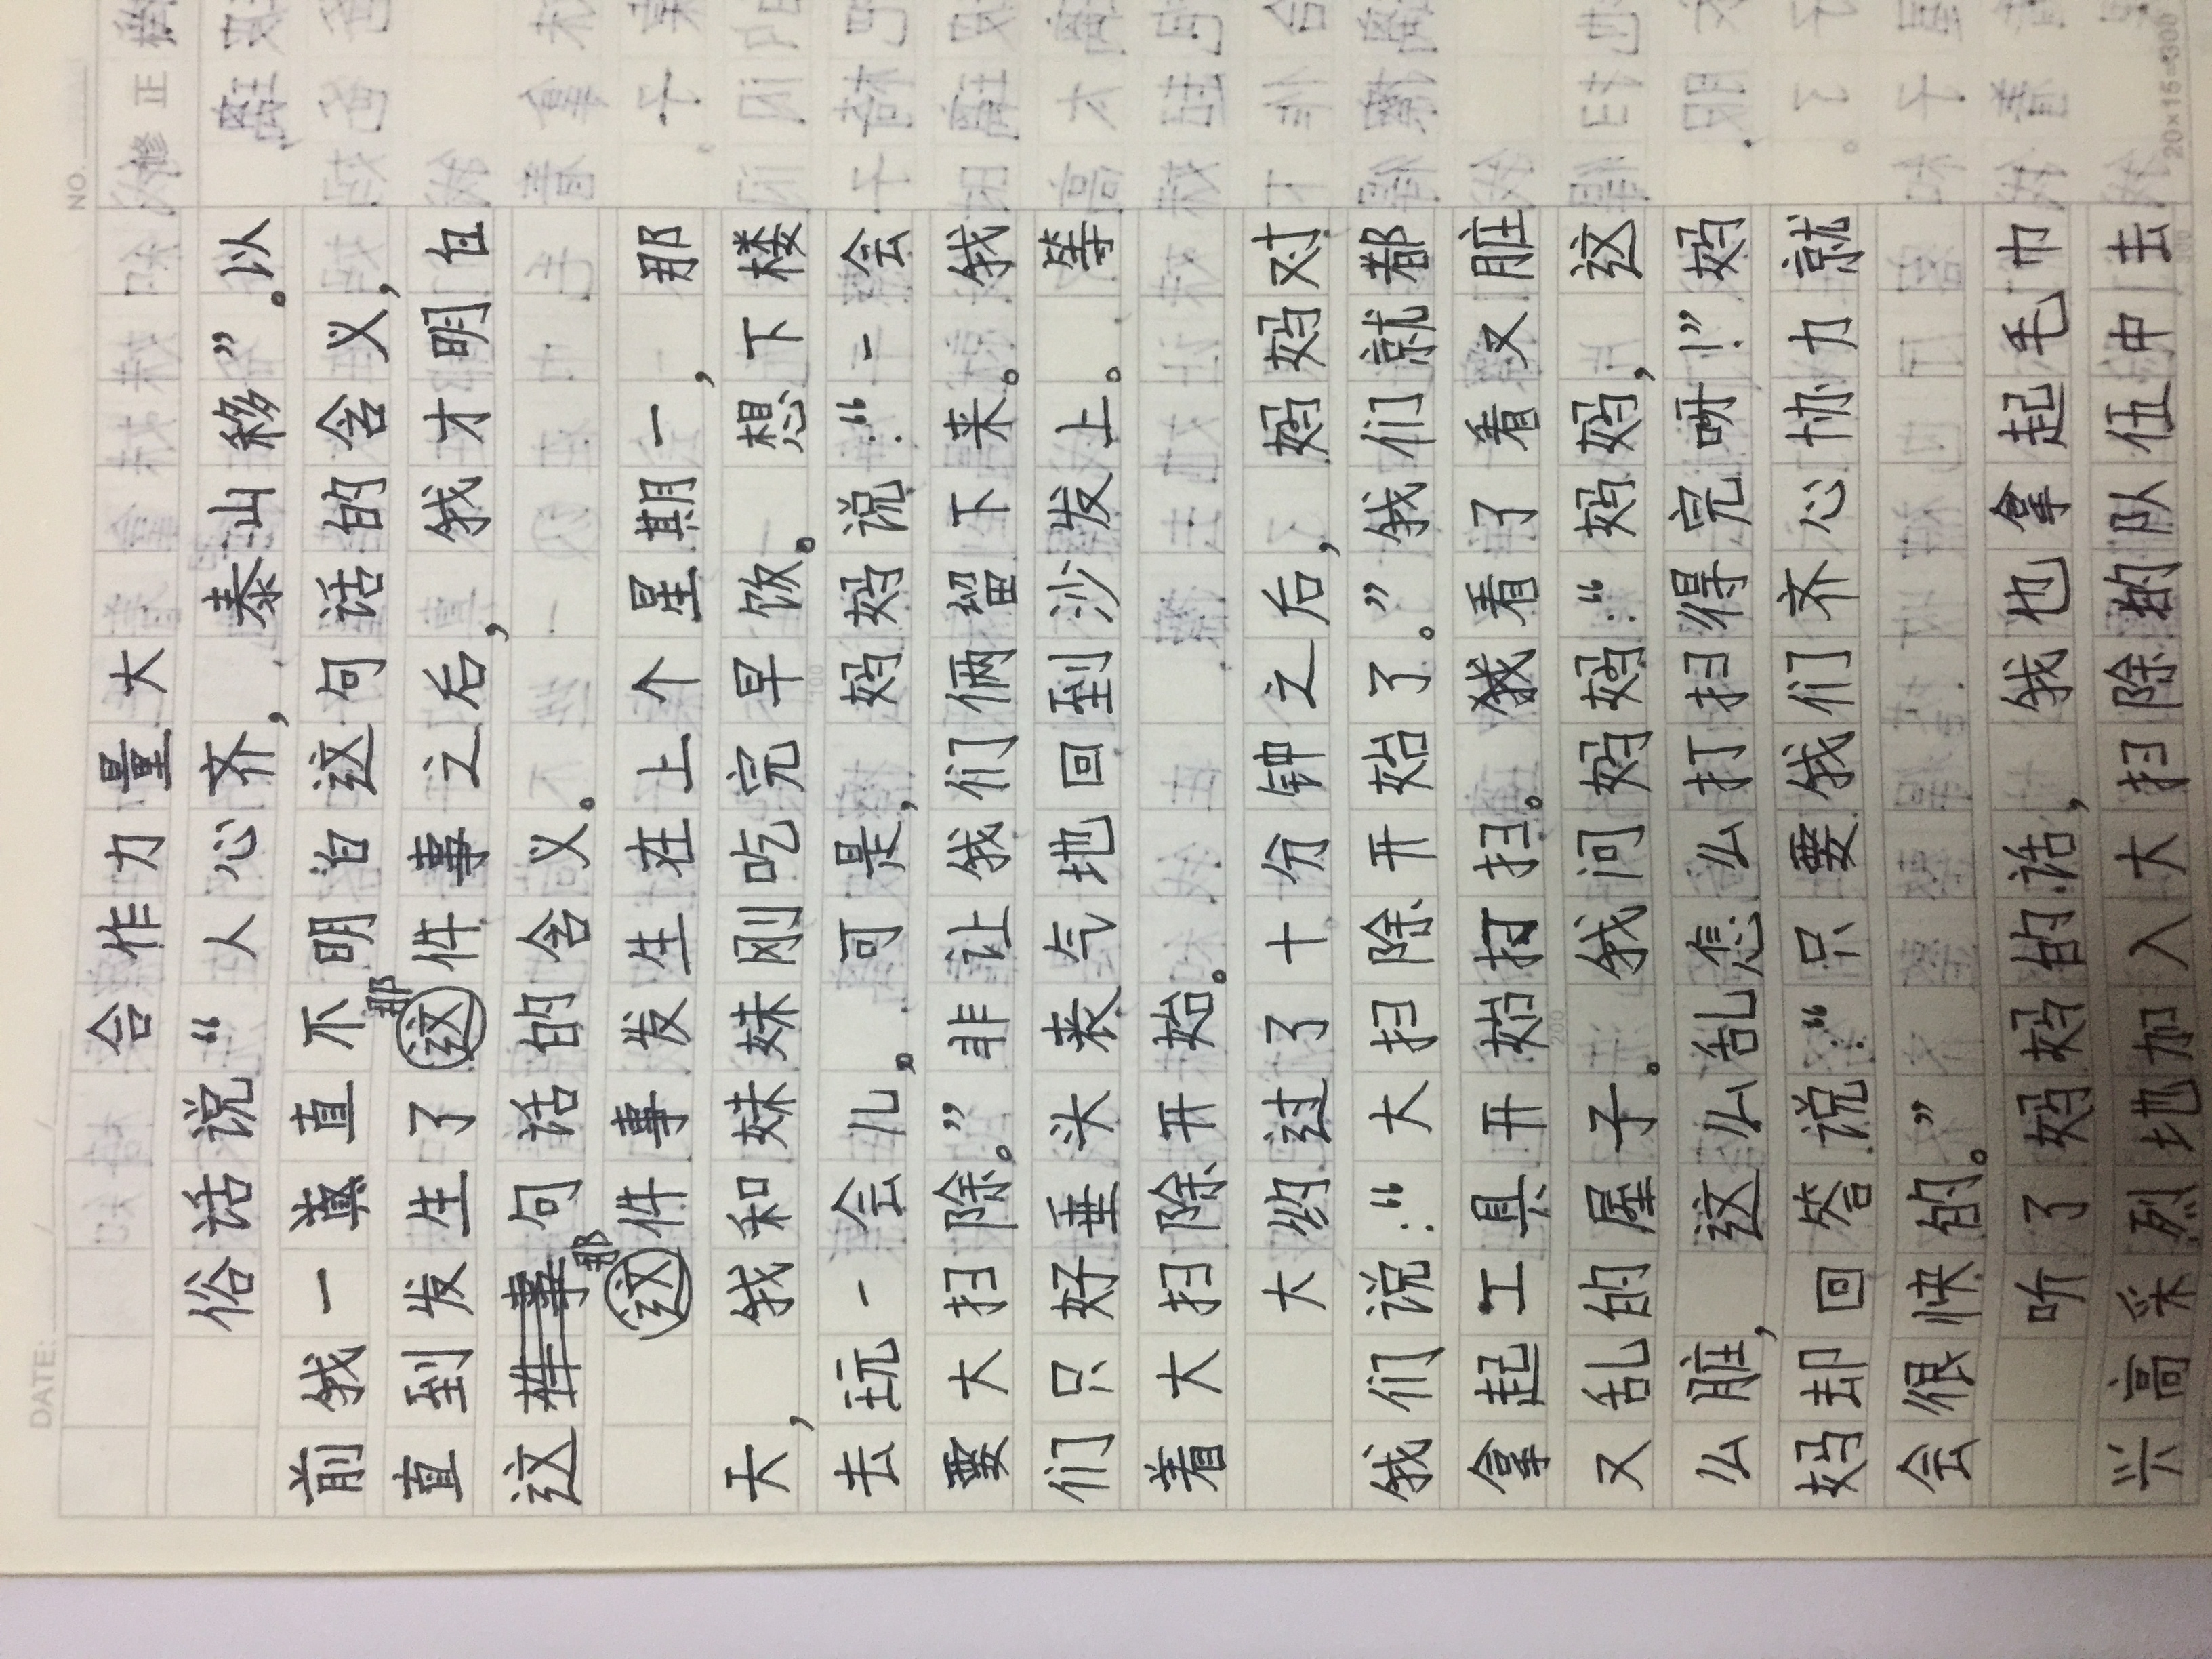 DATE: / /
NO.
修正
合作力量大
俗话说“人心齐,泰山移”。以
前我一直不明白这句话的含义,
直到发生了这那件事之后,我才明白
这件事句话的含义。
这那件事发生在上个星期一,那
天,我和妹妹刚吃完早饭。想下楼
去玩一会儿。可是,妈妈说:“一会
要大扫除。”非让我们俩留下来。我
们只好垂头丧气地回到沙发上。等
着大扫除开始。
大约过了十分钟之后,妈妈对
我们说:“大扫除开始了。”我们就都
拿起工具开始打扫。我看了看又脏
又乱的屋子。我问妈妈:“妈妈,这
么脏,这么乱怎么打扫得完呀!”妈
妈却回答说:“只要我们齐心协力就
会很快的。”
听了妈妈的话,我也拿起毛巾
兴高采烈地加入大扫除的队伍中去
20×15=300